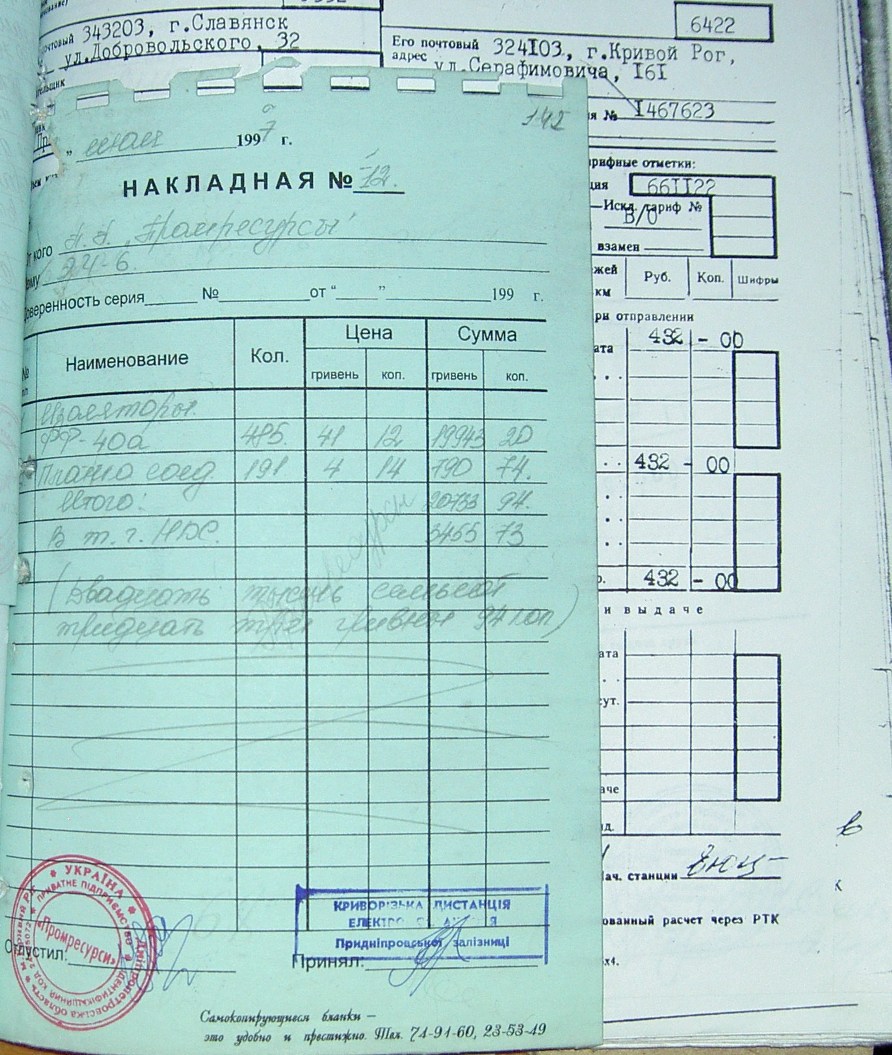 6422
почтовый 343203, г.Славянск
ул.Добровольского, 32
Его почтовый 324I03, г.Кривой Рог,
адрес ул.Серафимовича, I6I
я № I467623
142
" май 1997 г.
НАКЛАДНАЯ № 12.
От кого п.п. "Промресурсы"
Кому ЭЧ-6.
Доверенность серия № от " " 199 г.
Наименование Кол. Цена Сумма
гривень коп. гривень коп.
Изоляторы
ФФ-40а 485. 41 12 19943 20
Планка соед. 191 4 14 790 74.
Итого: 20733 94.
В т.ч. НДС. 3455 73
(Двадцать тысяч семьсот
тридцать три гривни 94 коп)
арифные отметки:
66II22
Искл. тариф №
В/О
взамен
Руб. Коп. Шифры
км
ри отправлении
432 - 00
432 - 00
432 - 00
и выдаче
ач. станции
ованный расчет через РТК
УКРАЇНА
ПРИВАТНЕ ПІДПРИЄМСТВО
«Промресурси»
Дніпропетровська область
ІДЕНТИФІКАЦІЙНИЙ КОД
КРИВОРІЗЬКА ДИСТАНЦІЯ
Придніпровської залізниці
Отпустил: Принял:
Самокопирующиеся бланки —
это удобно и престижно. Тел. 74-91-60, 23-53-49